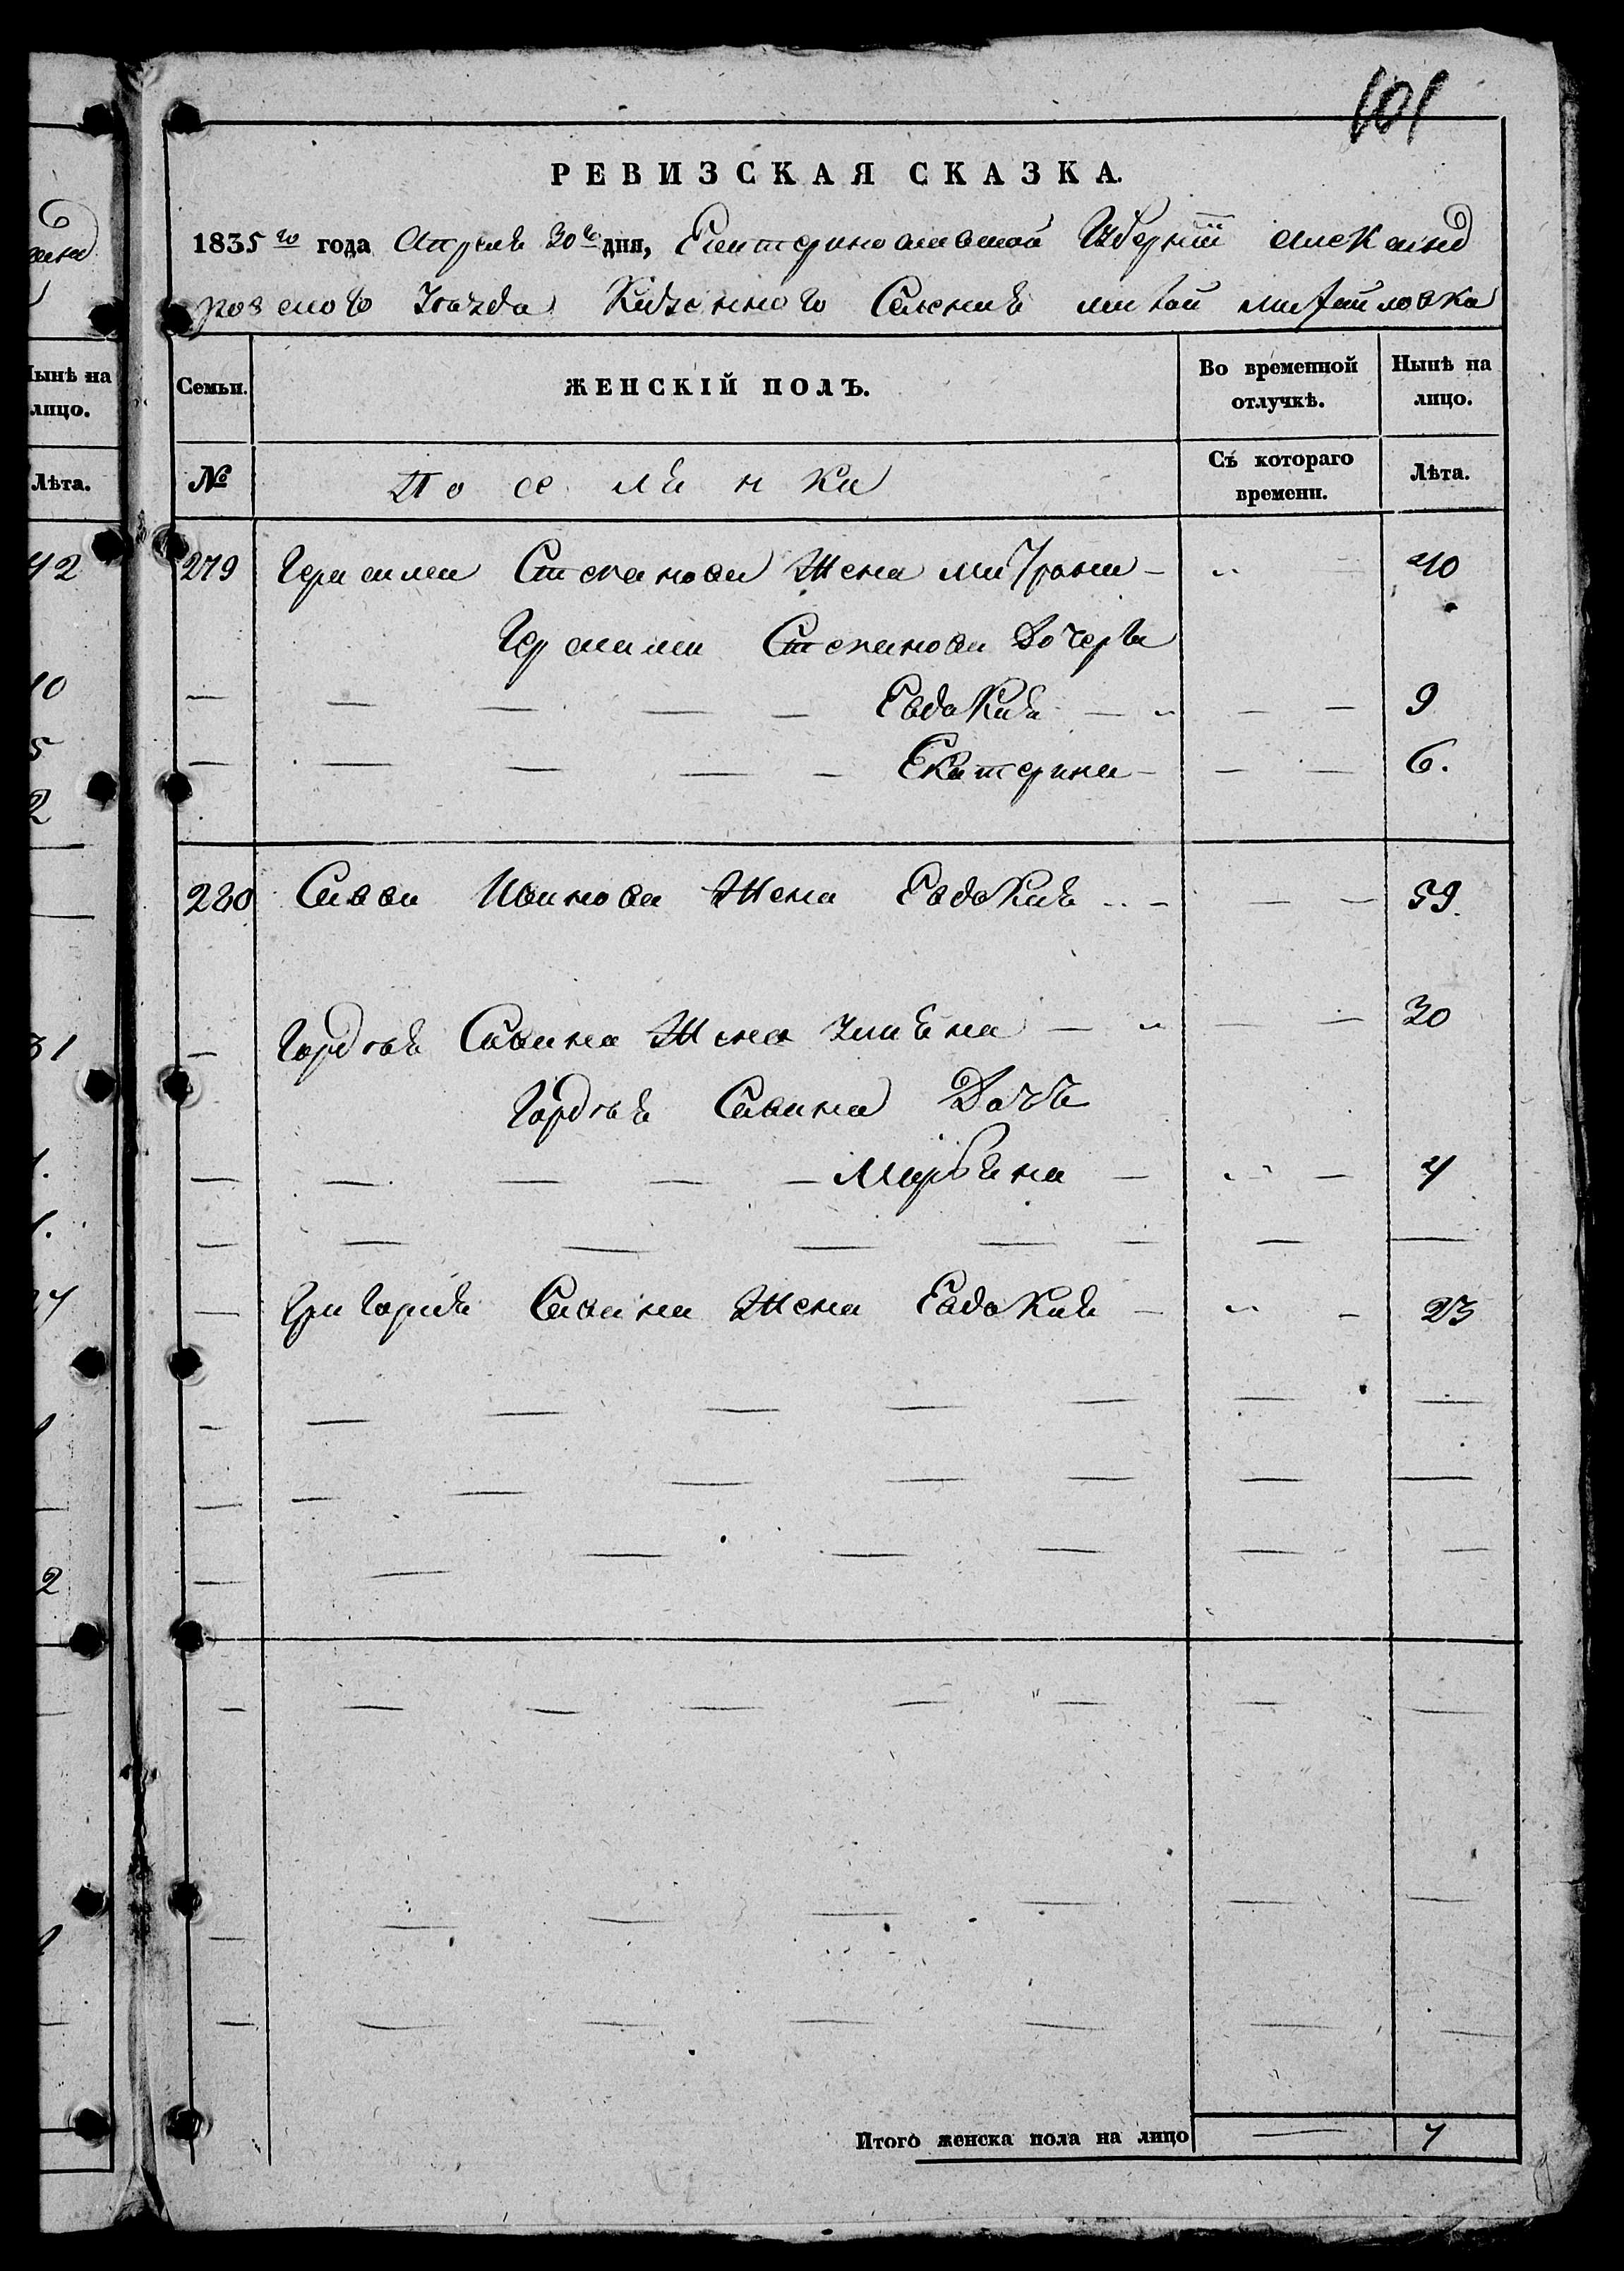 101
РЕВИЗСКАЯ СКАЗКА.
1835 го года Апреля 30 го дня, Екатеринославской Губернии Александ
ровского Уезда Казенного Селения малой михайловка
Семьи. ЖЕНСКІЙ ПОЛЪ. Во временной отлучкѣ. Нынѣ на лицо.
№ Поселянка Съ котораго времени. Лѣта.
279 Герасима Степанова Жена 40
Герасима Степанова Дочери
Евдокия 9
Екатерина 6.
280 Савы Иванова Жена Евдокия 59.
Гордея Савина Жена Ульяна 30
Гордея Савина Дочь
Марьяна 4
Григория Савина Жена Евдокия 23
Итого женска пола на лицо 7
Нынѣ на
лицо.
Лѣта.
42
10
5
2
31
2